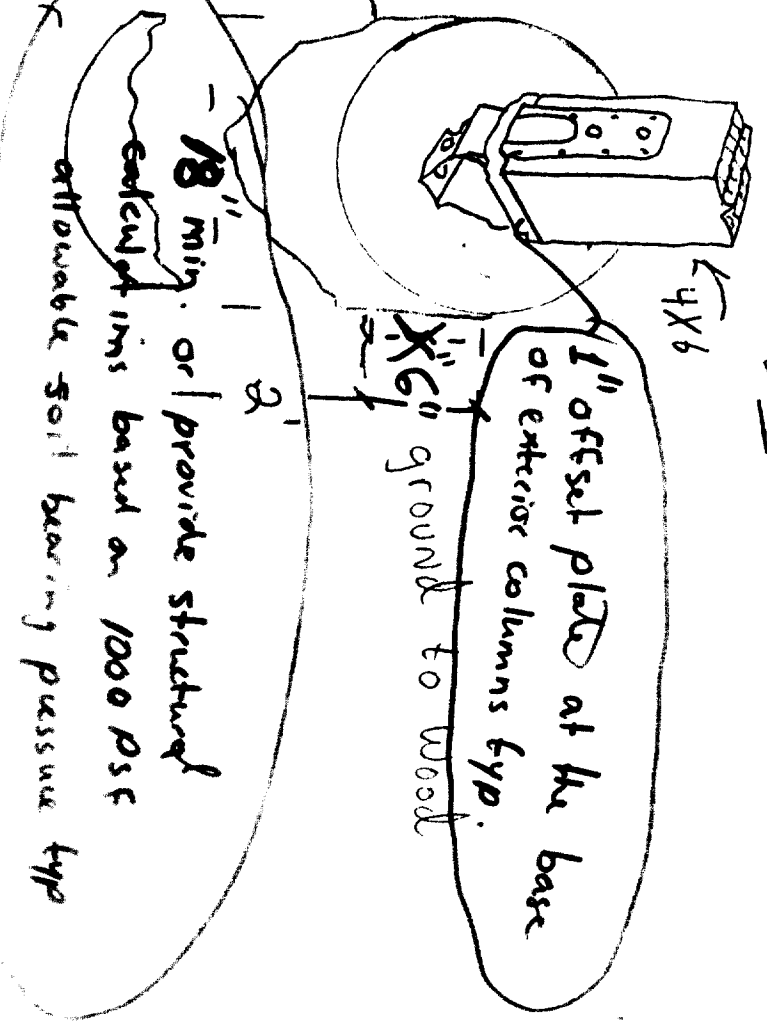 4X6
1" offset plate at the base
of exterior columns typ.
6" ground to wood
2'
18" min. or provide structural
calculations based on 1000 PSF
allowable soil bearing pressure typ